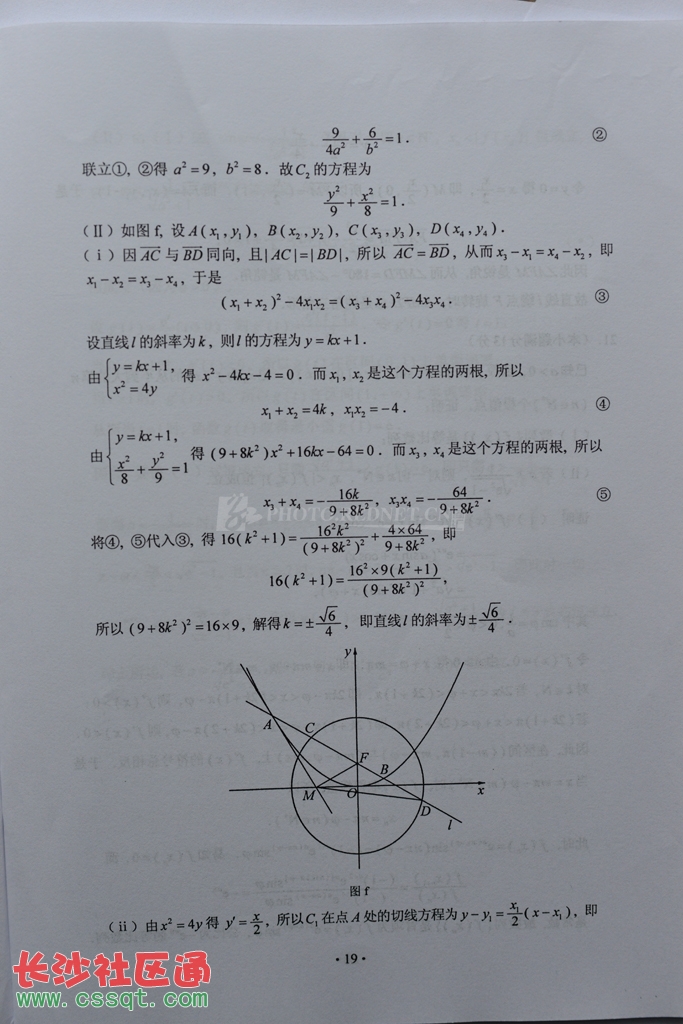 9/4a² + 6/b² = 1. ②
联立①, ②得 a² = 9, b² = 8. 故C₂的方程为
y²/9 + x²/8 = 1.
(Ⅱ) 如图 f, 设 A(x₁, y₁), B(x₂, y₂), C(x₃, y₃), D(x₄, y₄).
(ⅰ) 因 AC 与 BD 同向, 且|AC|=|BD|, 所以 AC = BD, 从而 x₃ - x₁ = x₄ - x₂, 即
x₁ - x₂ = x₃ - x₄, 于是
(x₁ + x₂)² - 4x₁x₂ = (x₃ + x₄)² - 4x₃x₄. ③
设直线 l 的斜率为 k, 则 l 的方程为 y = kx + 1.
由 { y = kx + 1, x² = 4y 得 x² - 4kx - 4 = 0. 而 x₁, x₂ 是这个方程的两根, 所以
x₁ + x₂ = 4k, x₁x₂ = -4. ④
由 { y = kx + 1, x²/8 + y²/9 = 1 得 (9 + 8k²)x² + 16kx - 64 = 0. 而 x₃, x₄ 是这个方程的两根, 所以
x₃ + x₄ = -16k/(9 + 8k²), x₃x₄ = -64/(9 + 8k²). ⑤
将④, ⑤代入③, 得 16(k² + 1) = 16²k²/(9 + 8k²)² + 4×64/(9 + 8k²), 即
16(k² + 1) = 16²×9(k² + 1)/(9 + 8k²)²,
所以 (9 + 8k²)² = 16×9, 解得 k = ±√6/4, 即直线 l 的斜率为 ±√6/4.
y
A
C
F
B
M
O
x
D
l
图 f
(ⅱ) 由 x² = 4y 得 y′ = x/2, 所以 C₁ 在点 A 处的切线方程为 y - y₁ = x₁/2 (x - x₁), 即
·19·
长沙社区通
www.cssqt.com